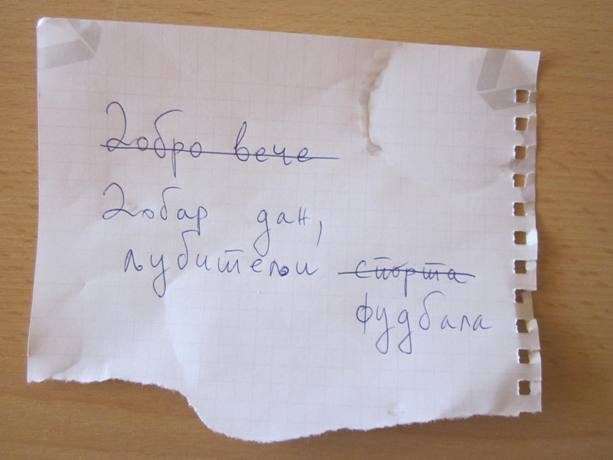 Добро вече
Добар дан,
љубитељи спорта
фудбала